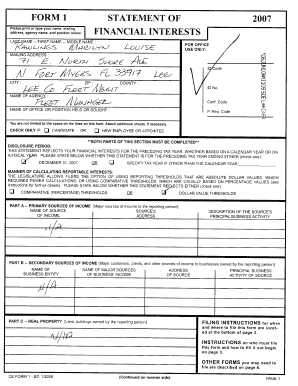 FORM 1
STATEMENT OF
2007
FINANCIAL INTERESTS
Please print or type your name, mailing
address, agency name, and position below:
LAST NAME -- FIRST NAME -- MIDDLE NAME :
MARILYN LOUISE
FOR OFFICE
USE ONLY:
MAILING ADDRESS :
71 E. NORTH SHORE AVE
N FORT MYERS FL 33917 LEE
CITY : ZIP : COUNTY :
LEE CO FLEET MGMT
NAME OF AGENCY :
FLEET MANAGER
NAME OF OFFICE OR POSITION HELD OR SOUGHT :
ID Code
ID No.
Conf. Code
P. Req. Code
You are not limited to the space on the lines on this form. Attach additional sheets, if necessary.
CHECK ONLY IF CANDIDATE OR NEW EMPLOYEE OR APPOINTEE
**BOTH PARTS OF THIS SECTION MUST BE COMPLETED**
DISCLOSURE PERIOD:
THIS STATEMENT REFLECTS YOUR FINANCIAL INTERESTS FOR THE PRECEDING TAX YEAR, WHETHER BASED ON A CALENDAR YEAR OR ON
A FISCAL YEAR. PLEASE STATE BELOW WHETHER THIS STATEMENT IS FOR THE PRECEDING TAX YEAR ENDING EITHER (check one):
DECEMBER 31, 2007 OR SPECIFY TAX YEAR IF OTHER THAN THE CALENDAR YEAR:
MANNER OF CALCULATING REPORTABLE INTERESTS:
THE LEGISLATURE ALLOWS FILERS THE OPTION OF USING REPORTING THRESHOLDS THAT ARE ABSOLUTE DOLLAR VALUES, WHICH
REQUIRES FEWER CALCULATIONS, OR USING COMPARATIVE THRESHOLDS, WHICH ARE USUALLY BASED ON PERCENTAGE VALUES (see
instructions for further details). PLEASE STATE BELOW WHETHER THIS STATEMENT REFLECTS EITHER (check one):
COMPARATIVE (PERCENTAGE) THRESHOLDS OR DOLLAR VALUE THRESHOLDS
PART A -- PRIMARY SOURCES OF INCOME [Major sources of income to the reporting person]
NAME OF SOURCE
OF INCOME
SOURCE'S
ADDRESS
DESCRIPTION OF THE SOURCE'S
PRINCIPAL BUSINESS ACTIVITY
N/A
PART B -- SECONDARY SOURCES OF INCOME [Major customers, clients, and other sources of income to businesses owned by the reporting person]
NAME OF
BUSINESS ENTITY
NAME OF MAJOR SOURCES
OF BUSINESS' INCOME
ADDRESS
OF SOURCE
PRINCIPAL BUSINESS
ACTIVITY OF SOURCE
N/A
PART C -- REAL PROPERTY [Land, buildings owned by the reporting person]
N/A
FILING INSTRUCTIONS for when
and where to file this form are locat-
ed at the bottom of page 2.
INSTRUCTIONS on who must file
this form and how to fill it out begin
on page 3.
OTHER FORMS you may need to
file are described on page 6.
CE FORM 1 - Eff. 1/2008
(Continued on reverse side)
PAGE 1